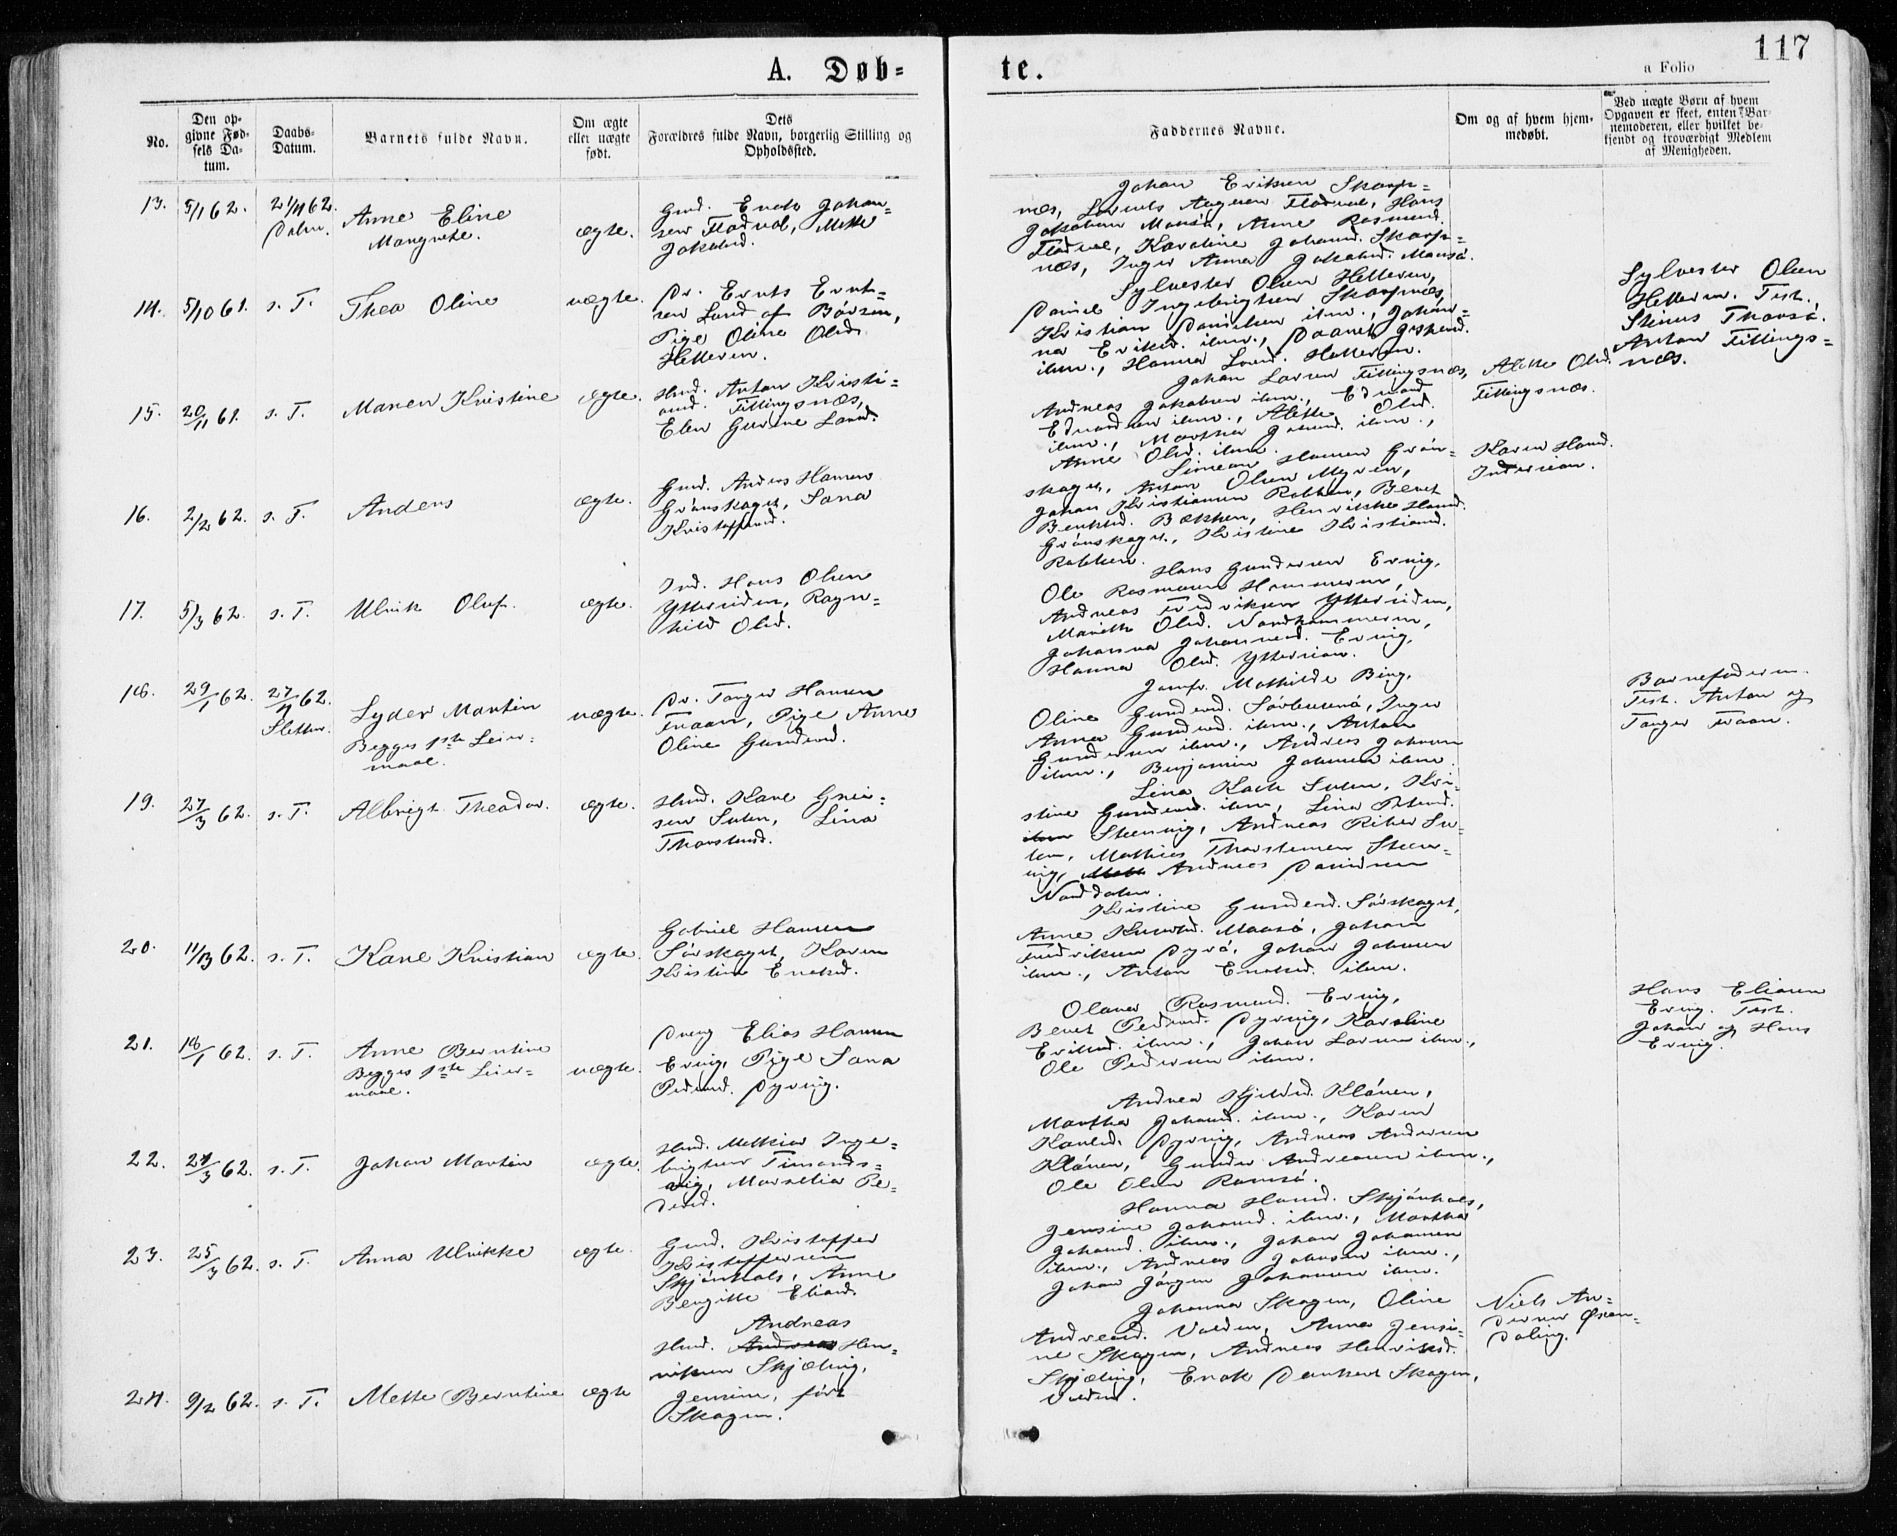 117
A. Døb=
te.
a Folio
No.
Den op-
givne Fød-
sels Da-
tum.
Daabs-
Datum.
Barnets fulde Navn.
Om ægte
eller uægte
født.
Dets
Forældres fulde Navn, borgerlig Stilling og
Opholdssted.
Faddernes Navne.
Om og af hvem hjem-
medøbt.
Ved uægte Børn af hvem
Opgaven er skeet, enten Bar-
nemoderen, eller hvilket be-
kjendt og troværdigt Medlem
af Menigheden.
13.
5/1 62.
21/4 62.
Anne Eline
Margrete.
ægte.
Gmd. Enok Johan-
sen Flatval, Mette
Jakobsd.
Johan Eriksen Skarp-
næs,
Jakobsen Mausø, Anne Rasmusd.
Karoline Johansd. Skarp-
næs, Inger Anna Jakobsd. Mausø.
14.
5/10 61.
s. T.
Thea Oline
uægte.
Dr. Ernts Ernt-
sen Land af Børsen,
Pige Oline Olsd.
Hetteren.
Sylvester Olsen Hetteren,
Daniel Ingebrigtsen Skarpnæs,
Kristian Danielsen ibm., Johan-
na Eriksd. ibm.,
ibm., Hanna Larsd. Hetteren.
Sylvester Olsen
Hetteren. Test.
Stinus Thorsø.
Anton Fillings=
næs.
15.
20/11 61.
s. T.
Maren Kristine
ægte.
Hmd. Anton Kristi-
ansd. Fillingsnæs,
Elen Gurine Larsd.
Johan Larsen Fillingsnæs,
Andreas Jakobsen ibm., Edvard
Edvardsen ibm., Alette Olsd.
ibm., Martha Johansd. ibm.,
Anne Olsd. ibm.
Alette Olsd.
Fillingsnæs.
16.
2/2 62.
s. T.
Anders
ægte.
Gmd. Anders Hansen
Grønskaget, Sara
Kristoffersd.
Simeon Hansen Grøn-
skaget, Anton Olsen Myren,
Johan Kristiansen Rabben, Beret
Bentsd. Bækken, Henrikke Hansd.
Grønskaget, Kristine Kristiansd.
Rabben.
Karen Hansd.
Inderøien.
17.
5/3 62.
s. T.
Ulrik Oluf.
ægte.
Ind. Hans Olsen
Ytterøiden, Ragn-
hild Olsd.
Hans Gundersen Ervig,
Ole Rasmussen Hammeren,
Andreas Fredriksen Ytterøiden,
Mareth Olsd. Nordhammeren,
Johanna Johannesd. Ervig,
Hanna Olsd. Ytterøien.
18.
29/1 62.
27/4 62.
Sletten.
Lyder Martin
Begges 1ste Leier-
maal.
uægte.
Dr. Tanger Hansen
Fraaen, Pige Anne
Oline Gundersd.
Jomfr. Mathilde Bing,
Oline Gundersd. Sørburø, Inger
Anna Gundersd. ibm., Anton
Gundersen ibm., Andreas Johnsen
ibm., Benjamin Johnsen ibm.
Barnefaderen.
Test. Anton og
Tanger Fraaen.
19.
27/3 62.
s. T.
Albrigt Theodor.
ægte.
Hmd. Karl Grei-
sen Sulen, Lina
Thorstensd.
Lina Koch Sulen, Kri-
stine Gundersd. ibm, Lina Petersd.
Stenvig, Andreas Riber Su-
len, Mathias Thorstensen Sten-
vig, Andreas Danielsen
Norddalen.
20.
11/3 62.
s. T.
Karl Kristian
ægte.
Gabriel Hansen
Sørskaget, Karen
Kristine Enoksd.
Kristine Gundersd. Sørskaget,
Anne Knutsd. Mausø, Johan
Fredriksen Dyrø, Johan Johnsen
ibm., Anton Enoksd. ibm.
21.
18/1 62.
s. T.
Anne Berntine
Begges 1ste Leier-
maal.
uægte.
Dreng Elias Hansen
Ervig, Pige Sara
Pedersd. Dyrvig.
Olava Rasmusd. Ervig,
Beret Pedersd. Dyrvig, Karoline
Eriksd. ibm., Johan Larsen ibm.,
Ole Pedersen ibm.
Hans Eliasen
Ervig. Test.
Johan og Hans
Ervig.
22.
24/3 62.
s. T.
Johan Martin
ægte.
Hmd. Melkior Inge-
brigtsen Timands-
vig, Marselia Pe-
dersd.
Andrea Kjelsd. Kløven,
Martha Johansd. ibm., Karen
Karlsd. Dyrvig, Andreas Andersen
Kløven, Gunder Andreasen ibm.,
Ole Olsen Ramsø.
23.
25/3 62.
s. T.
Anna Ulrikke
ægte.
Gmd. Kristoffer
Kristoffersen
Skjønhals, Anne
Bergitte Eliasd.
Hanna Hansd. Skjønhals,
Jensine Johansd. ibm., Martha
Johansd. ibm., Johan Johansen
ibm., Andreas Johnsen ibm.,
Johan Jørgen Johansen ibm.
24.
9/2 62.
s. T.
Mette Berntine
ægte
Andreas
Hmd. Andreas Hen-
riksen Skjæling,
Jensine, før
Skagen.
Johanna Skagen, Oline
Andreasd. Valden, Anna Jensi-
ne Skagen, Andreas Henriksd.
Skjæling, Enok Dankert Skagen,
Niels An-
dersen
Daling.